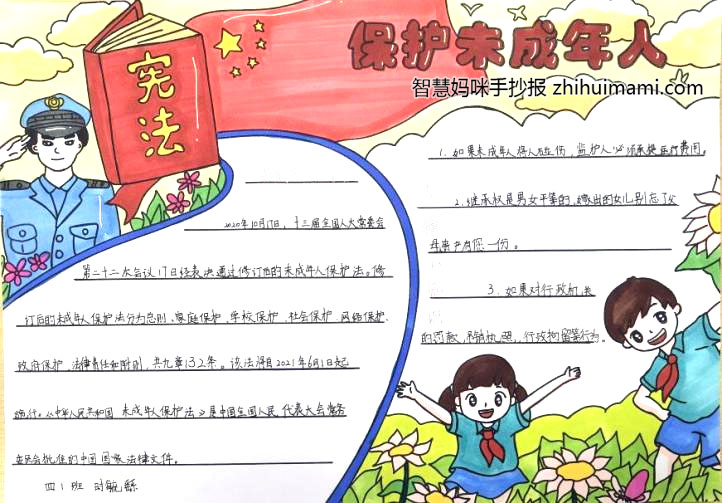 保护未成年人
智慧妈咪手抄报 zhihuimami.com
宪法
2020年10月17日，十三届全国人大常委会
第二十二次会议17日经表决通过修订后的未成年人保护法。修
订后的未成年人保护法分为总则、家庭保护、学校保护、社会保护、网络保护、
政府保护、法律责任和附则，共九章132条。该法将自2021年6月1日起
施行。《中华人民共和国 未成年人保护法》是中国全国人民代表大会常务
委员会批准的中国国家法律文件。
四1班
1. 如果未成年人将人砸伤，监护人必须承担医疗费用。
2. 继承权是男女平等的，嫁出的女儿别忘了父
母亲产有您一份。
3. 如果对行政机关
的罚款、吊销执照、行政拘留等行为。